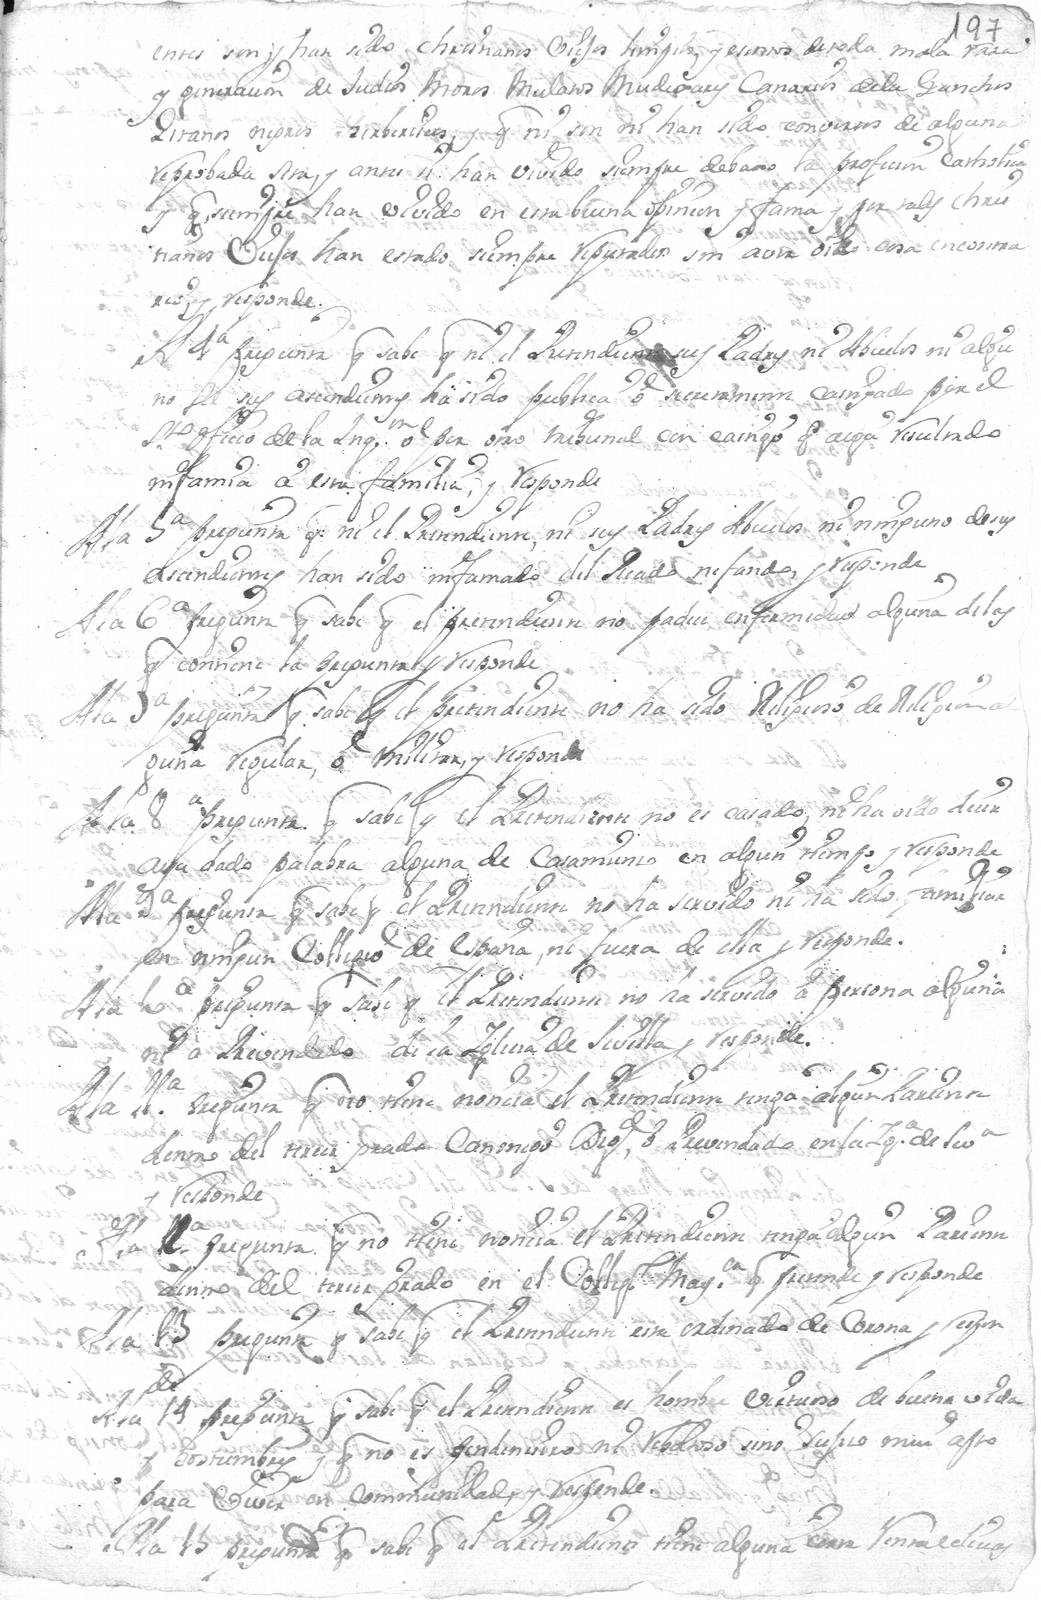 197
entes son y han sido christianos viejos limpios, y esentos de toda mala raza
y generacion de Judios Moros Mulatos Mudejares Canarios de la Guanchos
Gitanos negros y que ni son ni han sido conversos de alguna
reprobada seta, y antes si han vivido siempre debaxo la profecion Catholica
y q siempre han vivido en esta buena opinion y fama y por tales chris
tianos Viejos han estado siempre reputados sin aver oido cosa en contra
rio, y responde.
A 4a pregunta q sabe q ni el Pretendiente sus Padres ni Abuelos ni algu
no de sus ascendientes ha sido publica o secretamente castigado por el
Sto oficio de la Inqn o por otro tribunal con castigo q aiga resultado
infamia a esta familia, y responde
A la 5a pregunta q ni el Pretendiente, ni sus Padres Abuelos ni ninguno de sus
Ascendientes han sido infamado del Pecado nefando, y responde
A la 6a pregunta q sabe q el pretendiente no padece enfermedad alguna de las
q contiene la pregunta y responde
A la 7a pregunta q sabe q el pretendiente no ha sido Religioso de Religion al
guna regular, o militar, y responde
A la 8a pregunta q sabe q el Pretendiente no es casado, ni ha oido decir
aya dado palabra alguna de Casamiento en algun tiempo y responde
A la 9a pregunta q sabe q el Pretendiente no ha servido ni ha sido familiar
en ningun Collegio de España, ni fuera de ella y responde.
A la 10a pregunta q sabe q el Pretendiente no ha servido a persona alguna
ni a Prevendado de la Iglecia de Sevilla y responde.
A la 11a pregunta q no tiene noticia el Pretendiente tenga algun Pariente
dentro del tercer grado Canonigo Digd, o Prevendado en la Iga de Seva
y responde
A la 12a pregunta q no tiene noticia el Pretendiente tenga algun Pariente
dentro del tercer grado en el Collego Mayor q pretende y responde
A la 13 pregunta q sabe q el Pretendiente esta ordenado de Corona y respon
de
A la 14 pregunta q sabe q el Pretendiente es hombre virtuoso de buena vida
y costumbres y q no es pendenciero ni revoltoso sino sugeto mui apto
para vivir en Communidad, y responde.
A la 15 pregunta q sabe q el Pretendiente tiene alguna corta Renta eclesias